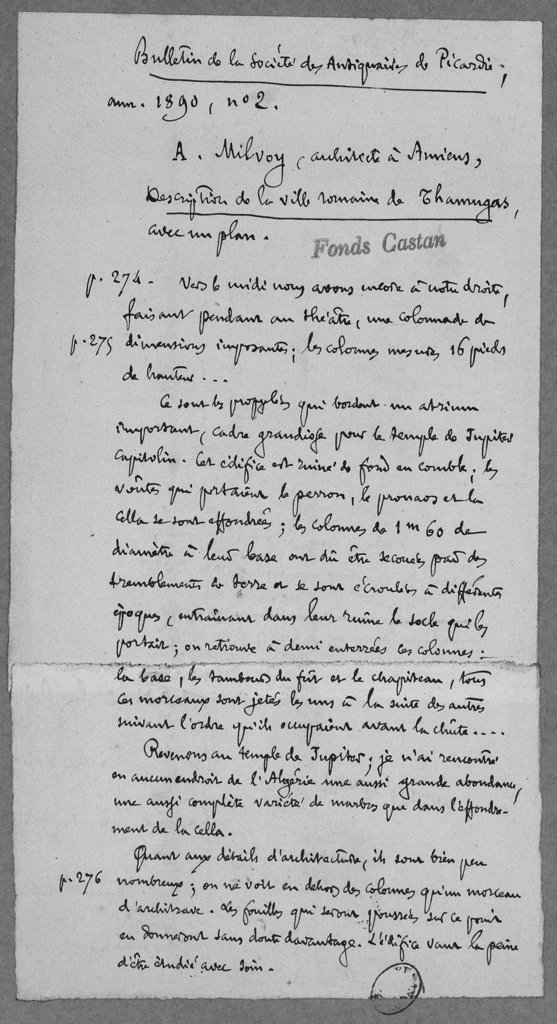 Bulletin de la Société des Antiquaires de Picardie,
ann. 1890, no 2.
A. Milvoy, architecte à Amiens,
Description de la ville romaine de Thamugas,
avec un plan.
Fonds Castan
p. 274. Vers le midi nous avons encore à notre droite,
faisant pendant au théâtre, une colonnade de
p. 275 dimensions imposantes; les colonnes mesurées 16 pieds
de hauteur...
Ce sont les propylées qui bordent un atrium
important, cadre grandiose pour le temple de Jupiter
Capitolin. Cet édifice est ruiné de fond en comble; les
voûtes qui portaient le perron, le pronaos et la
cella se sont effondrées; les colonnes de 1m 60 de
diamètre à leur base ont dû être secouées par des
tremblements de terre et se sont écroulées à différentes
époques, entraînant dans leur ruine le socle qui les
portait; on retrouve à demi enterrées ces colonnes:
la base, les tambours du fût et le chapiteau, tous
ces morceaux sont jetés les uns à la suite des autres
suivant l'ordre qu'ils occupaient avant la chûte....
Revenons au temple de Jupiter; je n'ai rencontré
en aucun endroit de l'Algérie une aussi grande abondance,
une aussi complète variété de marbres que dans l'effondre-
ment de la cella.
Quant aux détails d'architecture, ils sont bien peu
p. 276 nombreux; on ne voit en dehors des colonnes qu'un morceau
d'architrave. Les fouilles qui seront poussées sur ce point
en donneront sans doute davantage. L'édifice vaut la peine
d'être étudié avec soin.